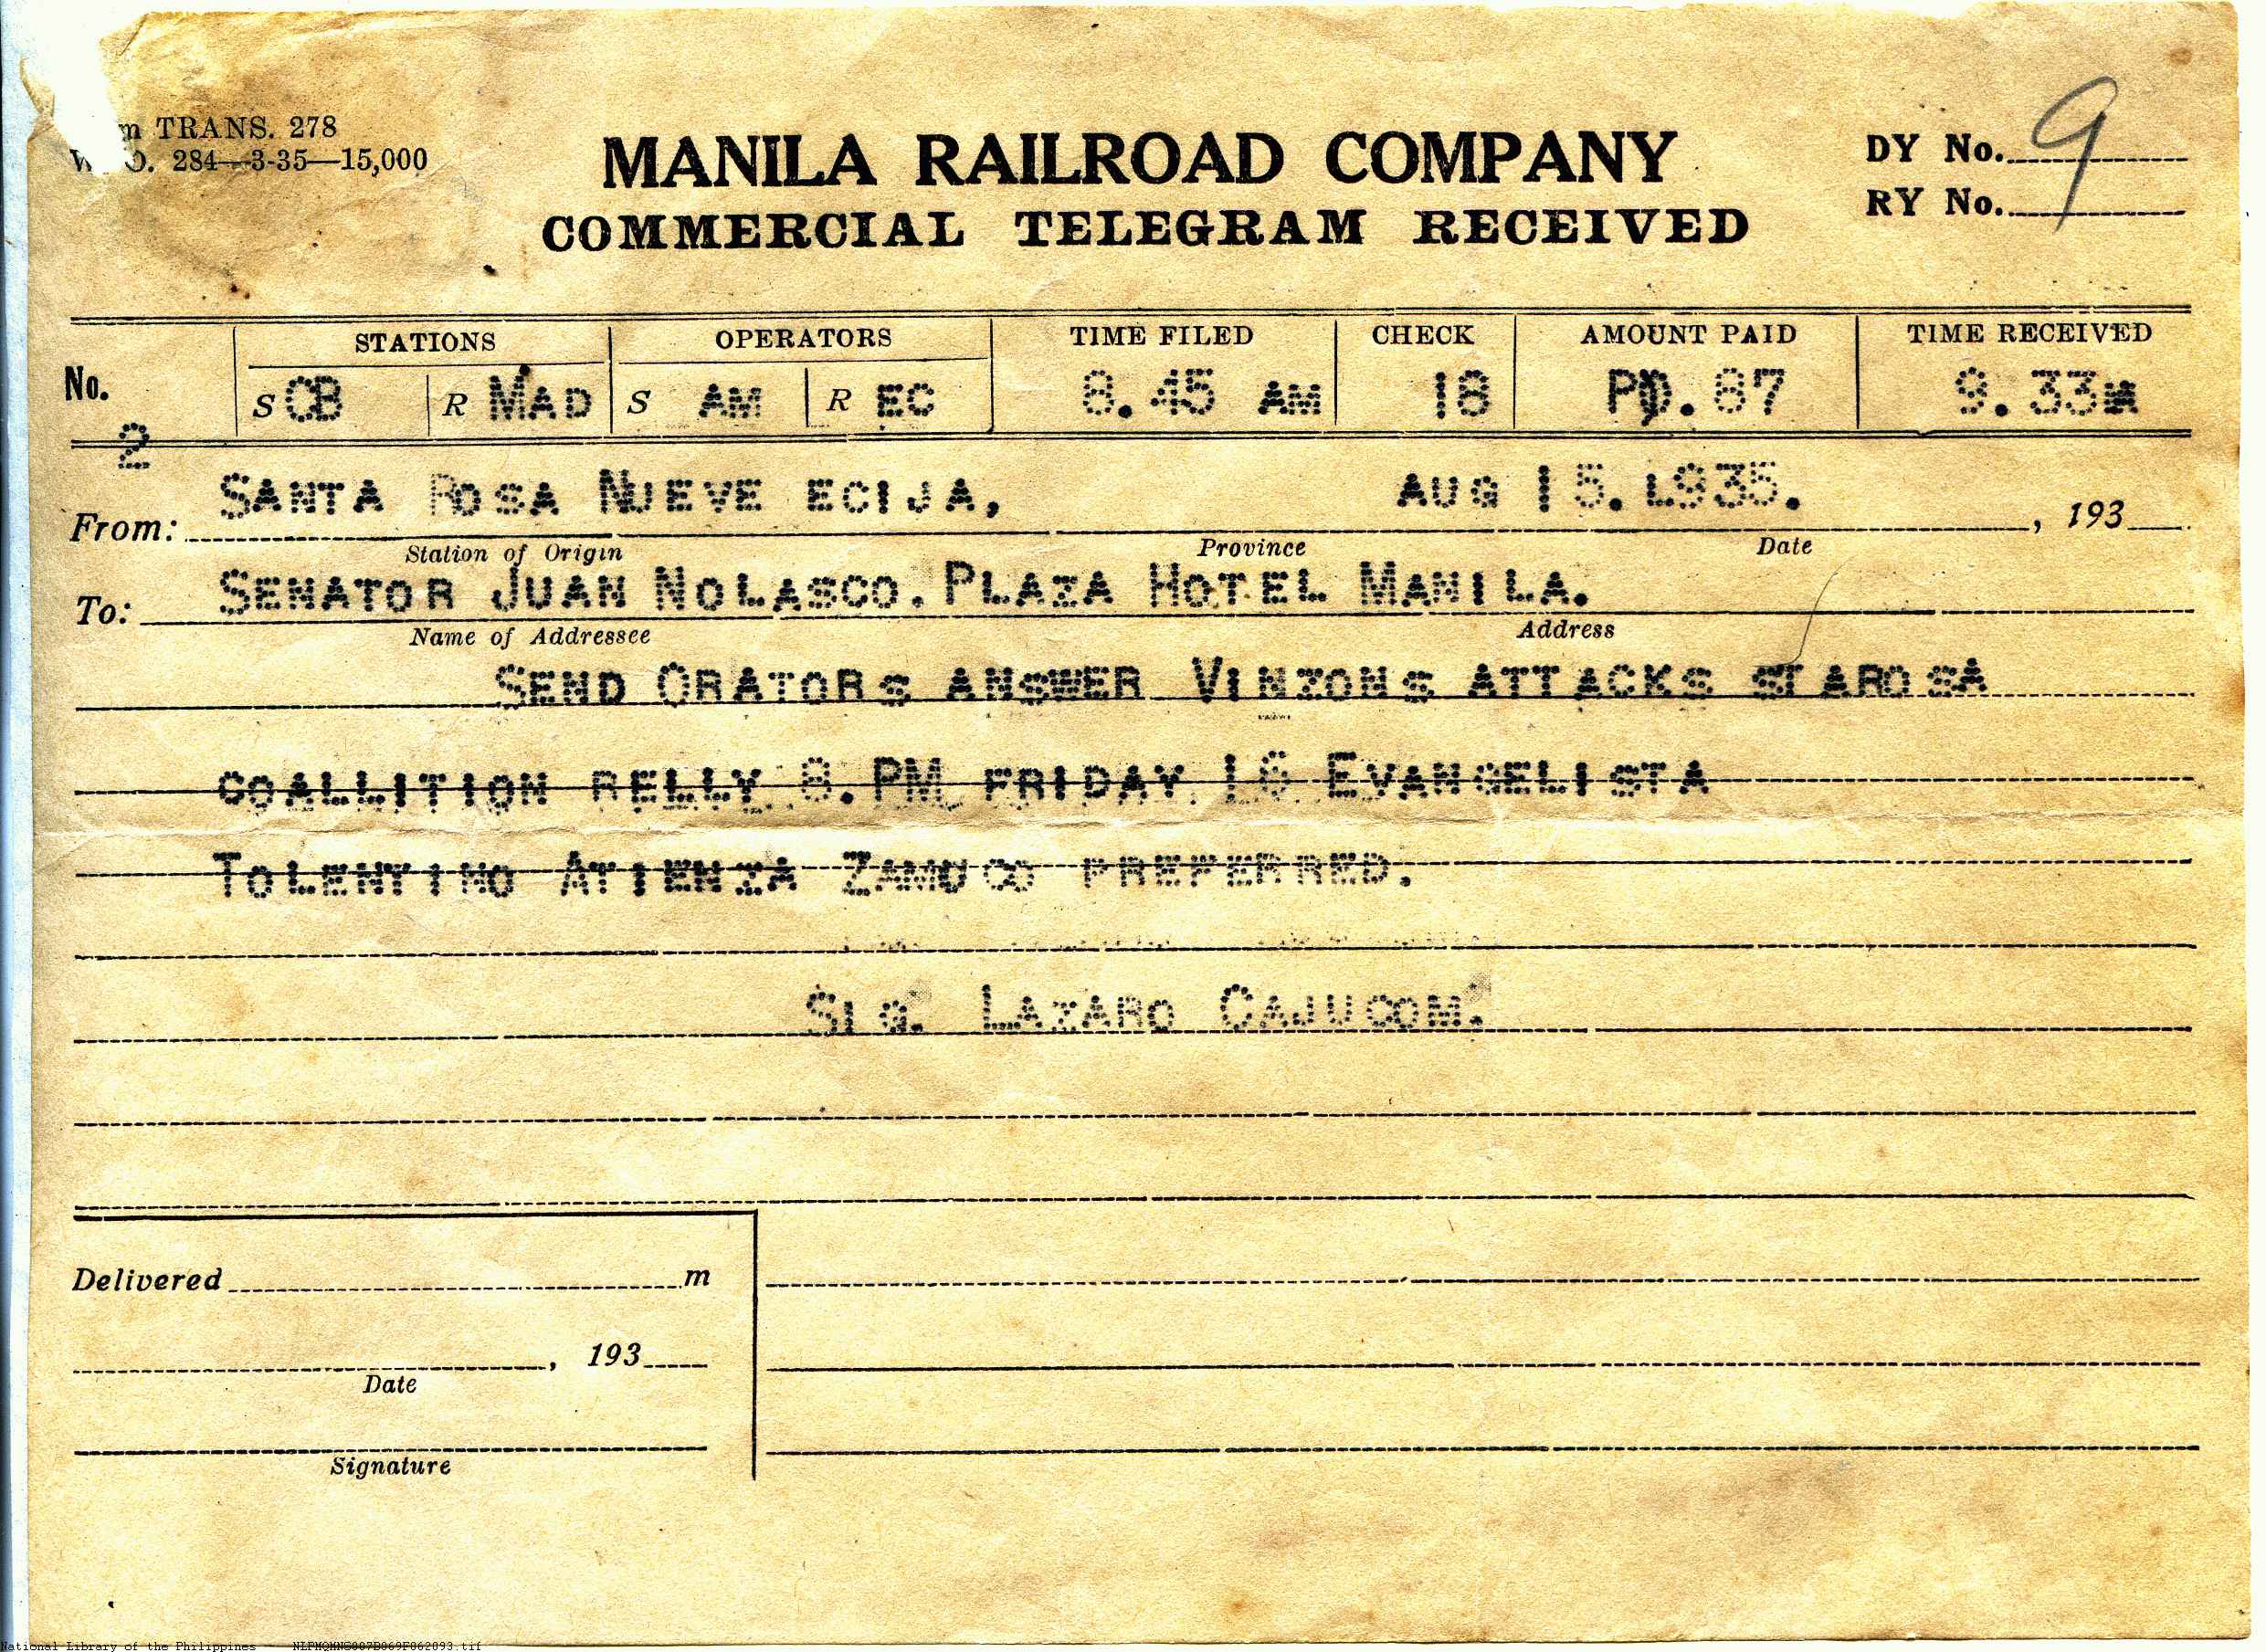 TRANS. 278
284-3-35-15,000
MANILA RAILROAD COMPANY
COMMERCIAL TELEGRAM RECEIVED
DY No. 9
RY No.
No. STATIONS OPERATORS TIME FILED CHECK AMOUNT PAID TIME RECEIVED
S CB R MAD S AM R EC 8.45 AM 18 P0.87 9.33
2
From: SANTA ROSA NUEVE ECIJA, AUG 15.L935. , 193
Station of Origin Province Date
To: SENATOR JUAN NOLASCO. PLAZA HOTEL MANILA.
Name of Addressee Address
SEND ORATORS ANSWER VINZONS ATTACKS STAROSA
COALLITION RELLY 8.PM FRIDAY 16 EVANGELISTA
TOLENTINO ATIENZA ZAMUCO PREFERRED.
SIG. LAZARO CAJUCOM.
Delivered m
, 193
Date
Signature
National Library of the Philippines